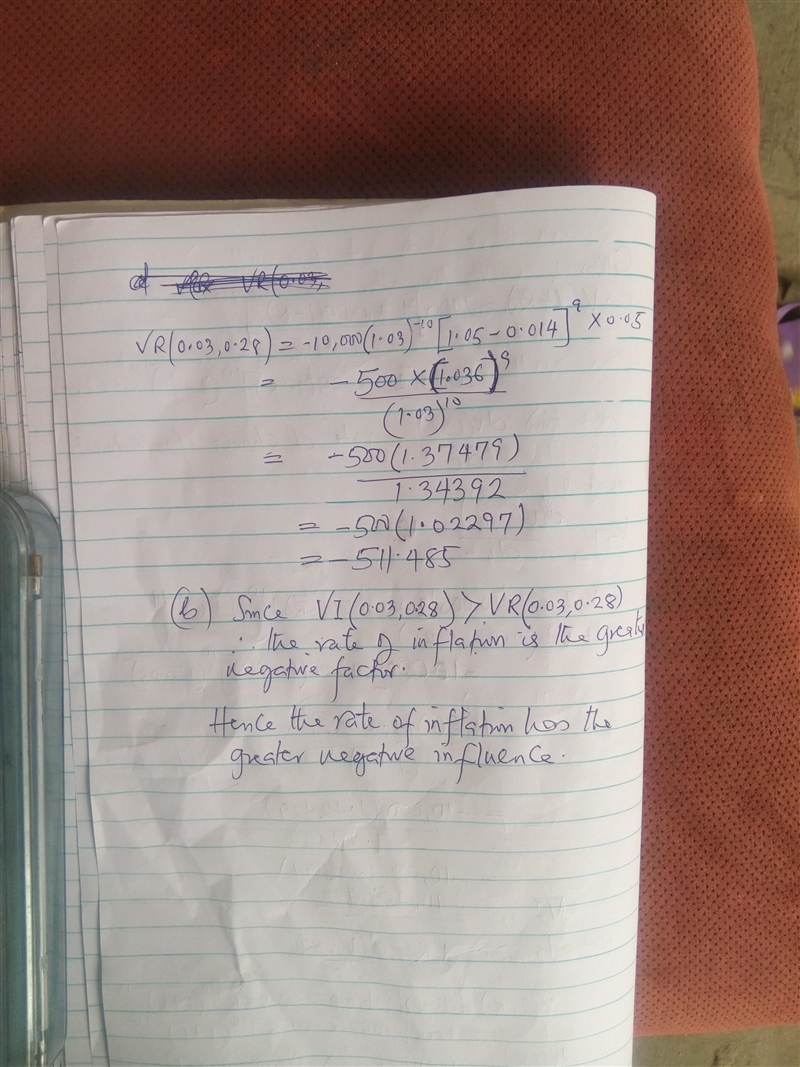 VR(0.03,0.28) = -10,000(1.03)^-10 [1.05 - 0.014]^9 × 0.05
= -500 × (1.036)^9 / (1.03)^10
= -500(1.37479) / 1.34392
= -500(1.02297)
= -511.485
(b) Since VI(0.03,028) > VR(0.03,0.28)
∴ the rate of inflation is the greater
negative factor.
Hence the rate of inflation has the
greater negative influence.